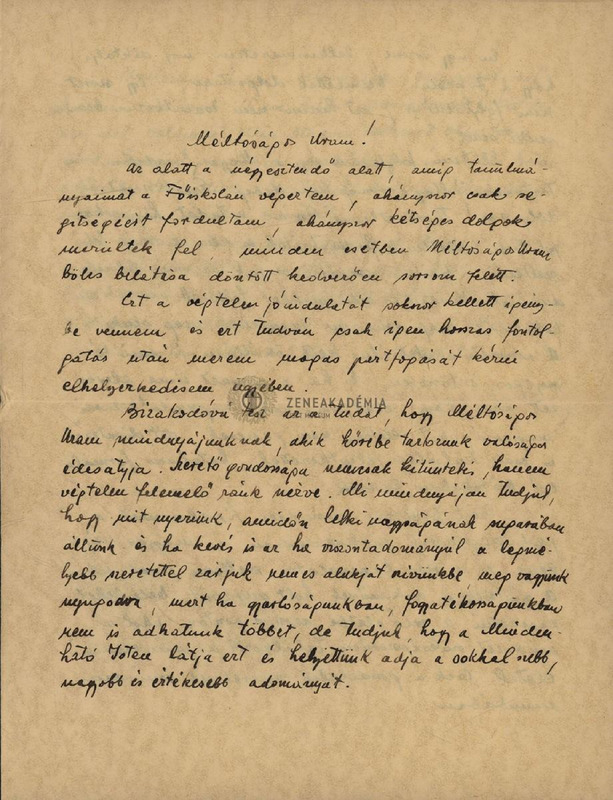 Méltóságos Uram!
Az alatt a négyesztendő alatt, amíg tanulmá-
nyaimat a Főiskolán végeztem, ahányszor csak se-
gítségéért fordultam, ahányszor kétséges dolgok
merültek fel, minden esetben Méltóságos Uram
bölcs belátása döntött kedvezően sorsom felett.
Ezt a végtelen jóindulatát sokszor kellett igény-
be vennem és ezt tudván csak igen hosszas fontol-
gatás után merem magas pártfogását kérni
elhelyezkedésem ügyében.
ZENEAKADÉMIA
Bizakodóvá tesz az a tudat, hogy Méltóságos
Uram mindnyájunknak, akik körébe tartozunk valóságos
édesatyja. Szerető gondossága nemcsak kitüntető, hanem
végtelen felemelő ránk nézve. Mi mindnyájan tudjuk,
hogy mit nyerünk, amidőn lelki nagyságának sugarában
állunk és ha kevés is az ha viszontadományúl a legmé-
lyebb szeretettel zárjuk nemes alakját szívünkbe, meg vagyunk
nyugodva, mert ha gyarlóságunkban, fogyatékosságunkban
nem is adhatunk többet, de tudjuk, hogy a Minden-
ható Isten látja ezt és helyettünk adja a sokkal szebb,
nagyobb és értékesebb adományát.